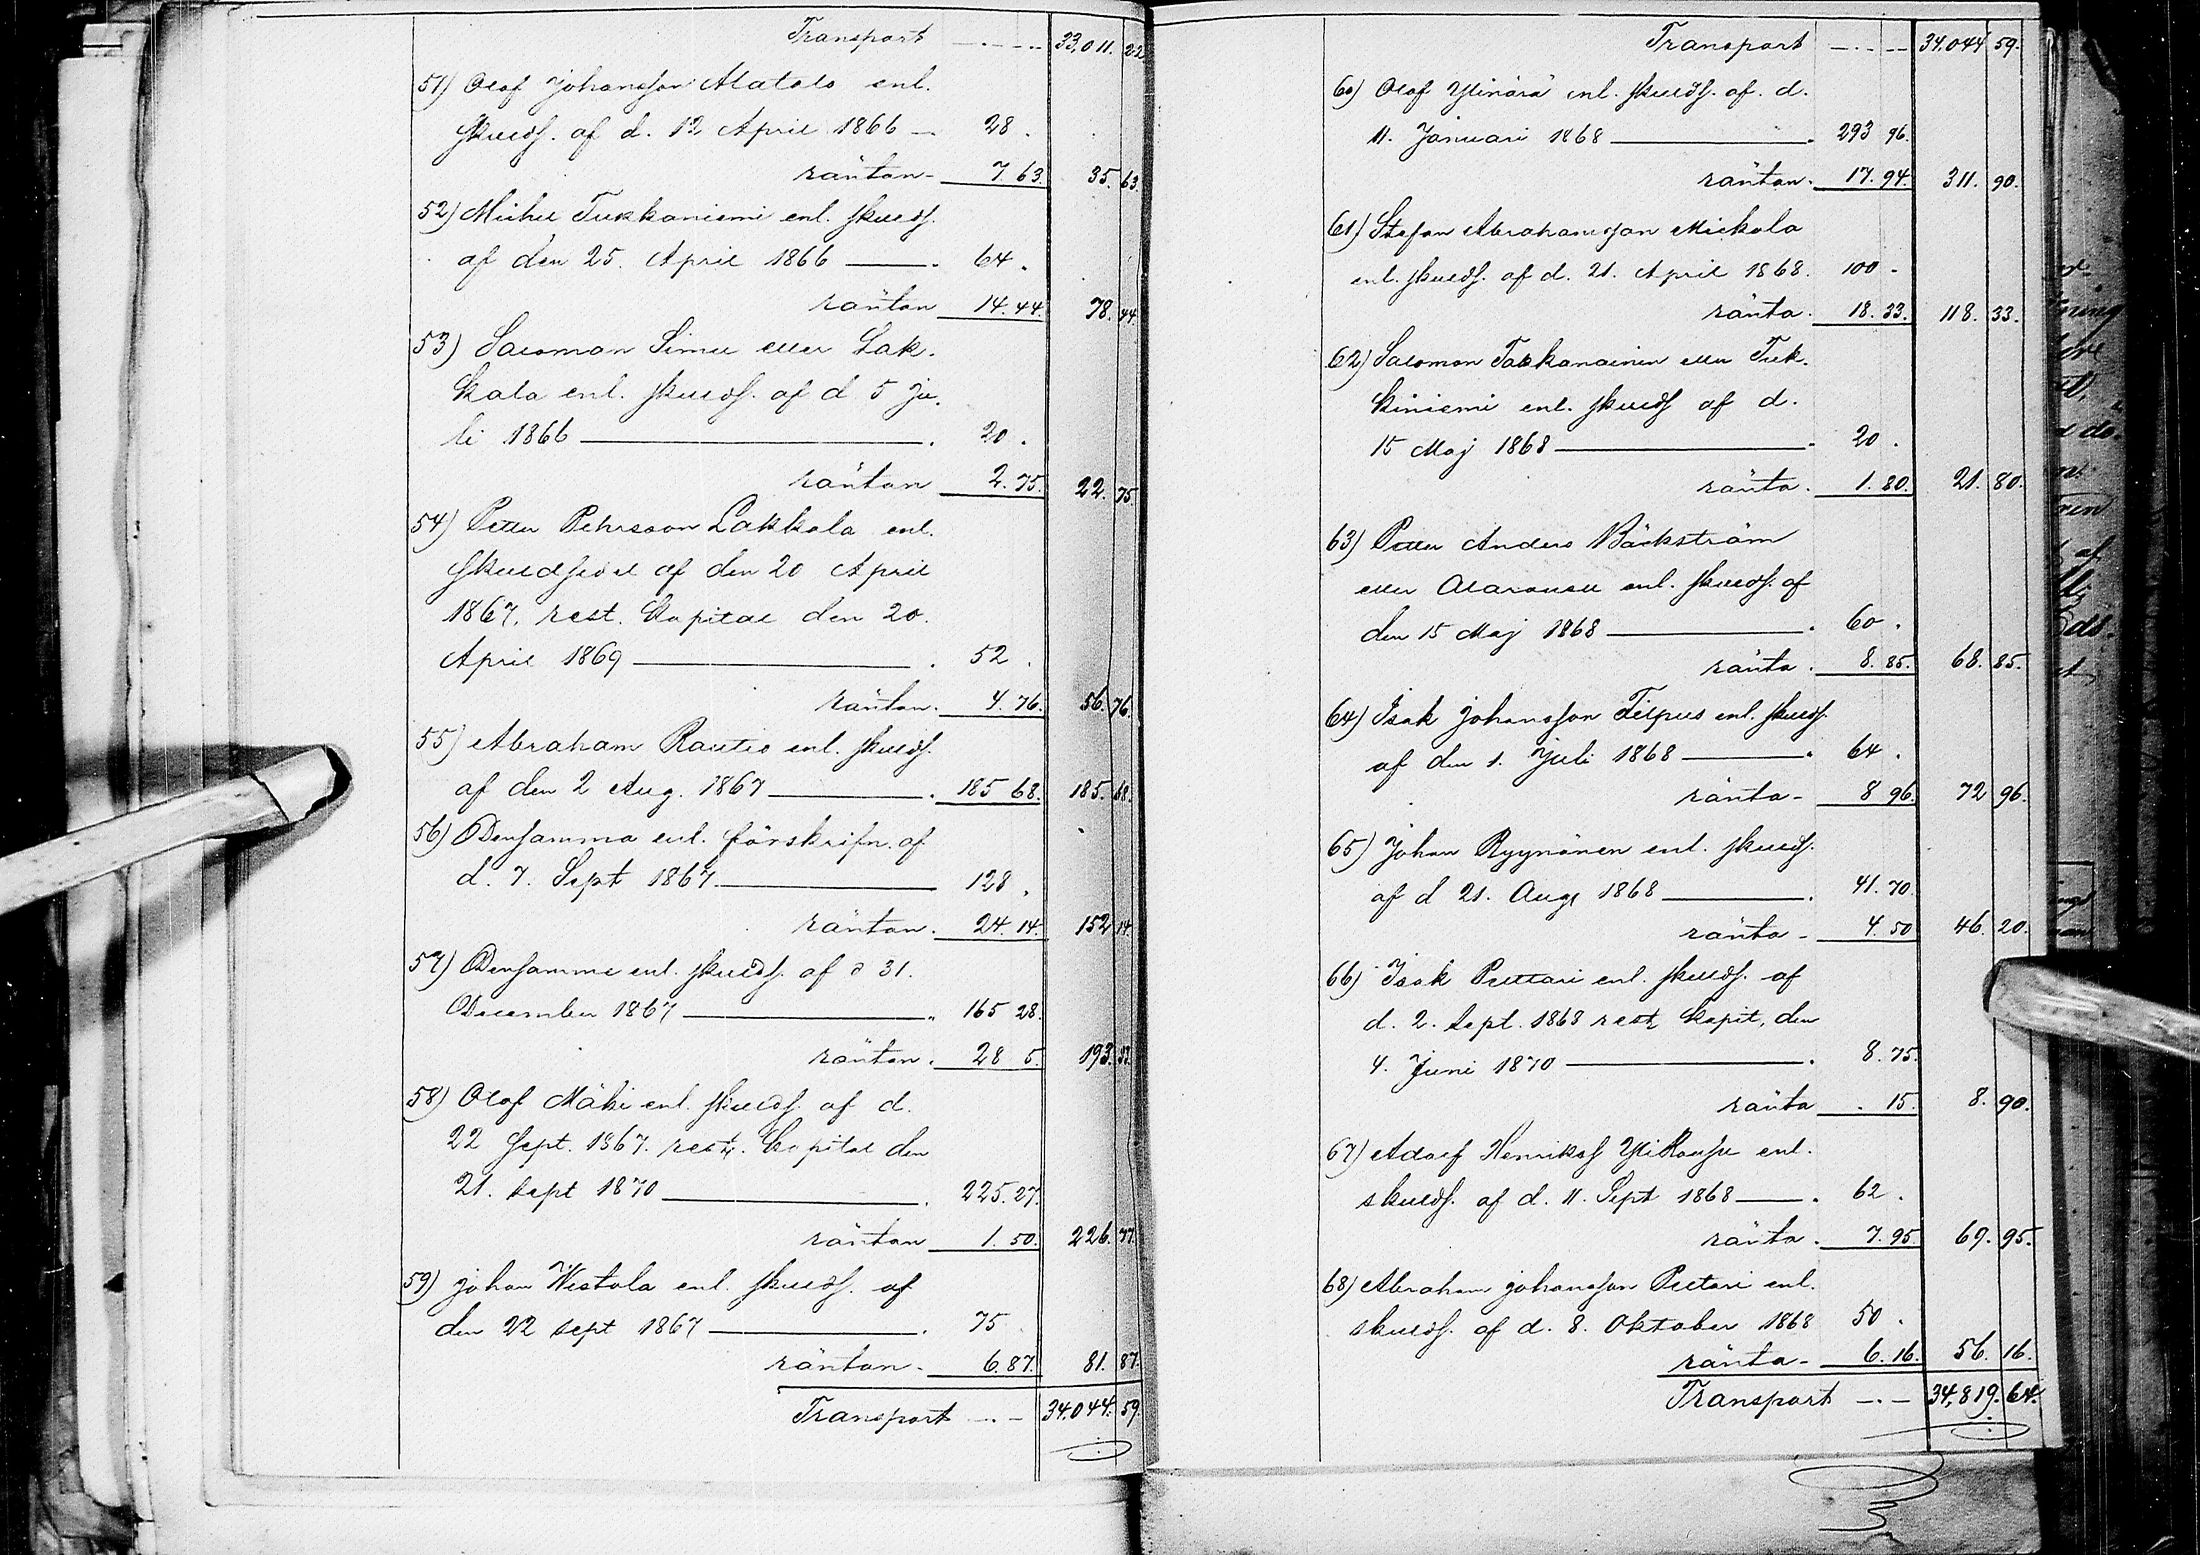 Transport 33,011. 22
51) Olof Johansson Alatalo enl.
skuldf. af d. 12 April 1866 28.
räntan 7. 63. 35. 63.
52) Michel Tukkaniemi enl. skuldf.
af den 25. April 1866 64.
räntan 14. 44. 78. 44.
53) Salomon Simu eller Lak-
kala enl. skuldf. af d 5 Ju-
li 1866 20.
räntan 2. 75. 22. 75.
54) Petter Pehrsson Lakkala enl.
skuldsedel af den 20 April
1867, rest. Kapital den 20.
April 1869 52.
räntan. 4. 76. 56. 76.
55) Abraham Rautio enl. skuldf.
af den 2 Aug. 1867 185 68. 185. 68.
56) Densamma enl. förskrifn. af
d. 7. Sept 1867. 128.
räntan. 24. 14. 152 14.
57) Densamme enl. skuldf. af d 31.
December 1867 165 28.
räntan. 28 5. 193. 33.
58) Olof Mäki enl. skuldf. af d.
22 Sept. 1867. rest. Kapital den
21. Sept 1870 225. 27.
räntan 1. 50. 226. 77.
59) Johan Wistola enl. skuldf. af
den 22 sept 1867 75
räntan. 6. 87. 81. 87.
Transport 34,044. 59.
Transport 34,044 59.
60) Olof Ylinärä enl. skuldf. af. d.
11. Januari 1868 293 96.
räntan. 17. 94. 311. 90.
61) Stefan Abrahamsson Mickola
enl. skuldf. af d. 21. April 1868. 100
ränta. 18. 33. 118. 33.
62) Salomon Takkanainen eller Tuk-
kiniemi enl. skuldf af d.
15 Maj 1868 20.
ränta. 1. 80. 21. 80.
63) Petter Anders Bäckström
eller Alarousu enl. skuldf. af
den 15 Maj 1868 60.
ränta. 8. 85. 68. 85.
64) Isak Johansson Filpus enl. skuldf.
af den 1. Juli 1868 64.
ränta 8 96. 72 96.
65) Johan Ryynänen enl. skuldf.
af d 21. Aug. 1868 41. 70.
ränta 4. 50 46. 20.
66) Isak Pruttari enl. skuldf. af
d. 2. Sept. 1868 rest. Kapit, den
4. Juni 1870 8. 75.
ränta . 15. 8. 90.
67) Adolf Henriksf YliRousu enl.
skuldf. af d. 11. Sept 1868 62.
ränta. 7. 95 69. 95.
68) Abraham Johansson Pietari enl.
skuldf. af d. 8. Oktober 1868 50.
ränta 6. 16. 56. 16.
Transport 34,819. 64.